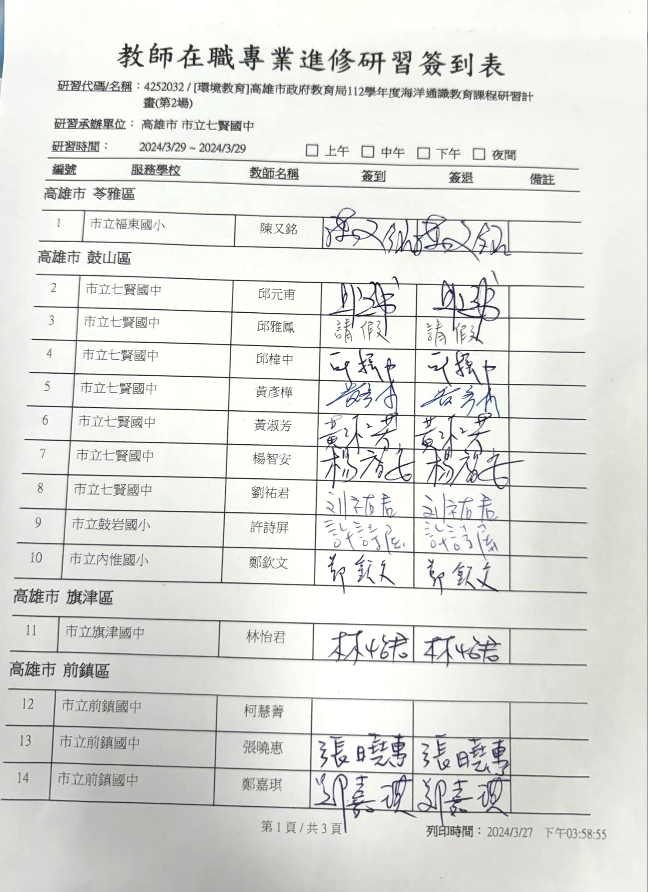 教師在職專業進修研習簽到表
研習代碼/名稱：4252032 / [環境教育]高雄市政府教育局112學年度海洋通識教育課程研習計
畫(第2場)
研習承辦單位： 高雄市 市立七賢國中
研習時間： 2024/3/29 ~ 2024/3/29 □ 上午 □ 中午 □ 下午 □ 夜間
編號 服務學校 教師名稱 簽到 簽退 備註
高雄市 苓雅區
1 市立福東國小 陳又銘 陳又銘 陳又銘
高雄市 鼓山區
2 市立七賢國中 邱元甫
3 市立七賢國中 邱雅鳳 請假 請假
4 市立七賢國中 邱樟中
5 市立七賢國中 黃彥樺
6 市立七賢國中 黃淑芳 黃淑芳 黃淑芳
7 市立七賢國中 楊智安 楊智安 楊智安
8 市立七賢國中 劉祐君 刘祐君 刘祐君
9 市立鼓岩國小 許詩屏 許詩屏 許詩屏
10 市立內惟國小 鄭欽文 鄭欽文 鄭欽文
高雄市 旗津區
11 市立旗津國中 林怡君 林怡君 林怡君
高雄市 前鎮區
12 市立前鎮國中 柯慧菁
13 市立前鎮國中 張曉惠 張曉惠 張曉惠
14 市立前鎮國中 鄭嘉琪 鄭嘉琪 鄭嘉琪
第 1 頁 / 共 3 頁 列印時間： 2024/3/27 下午03:58:55